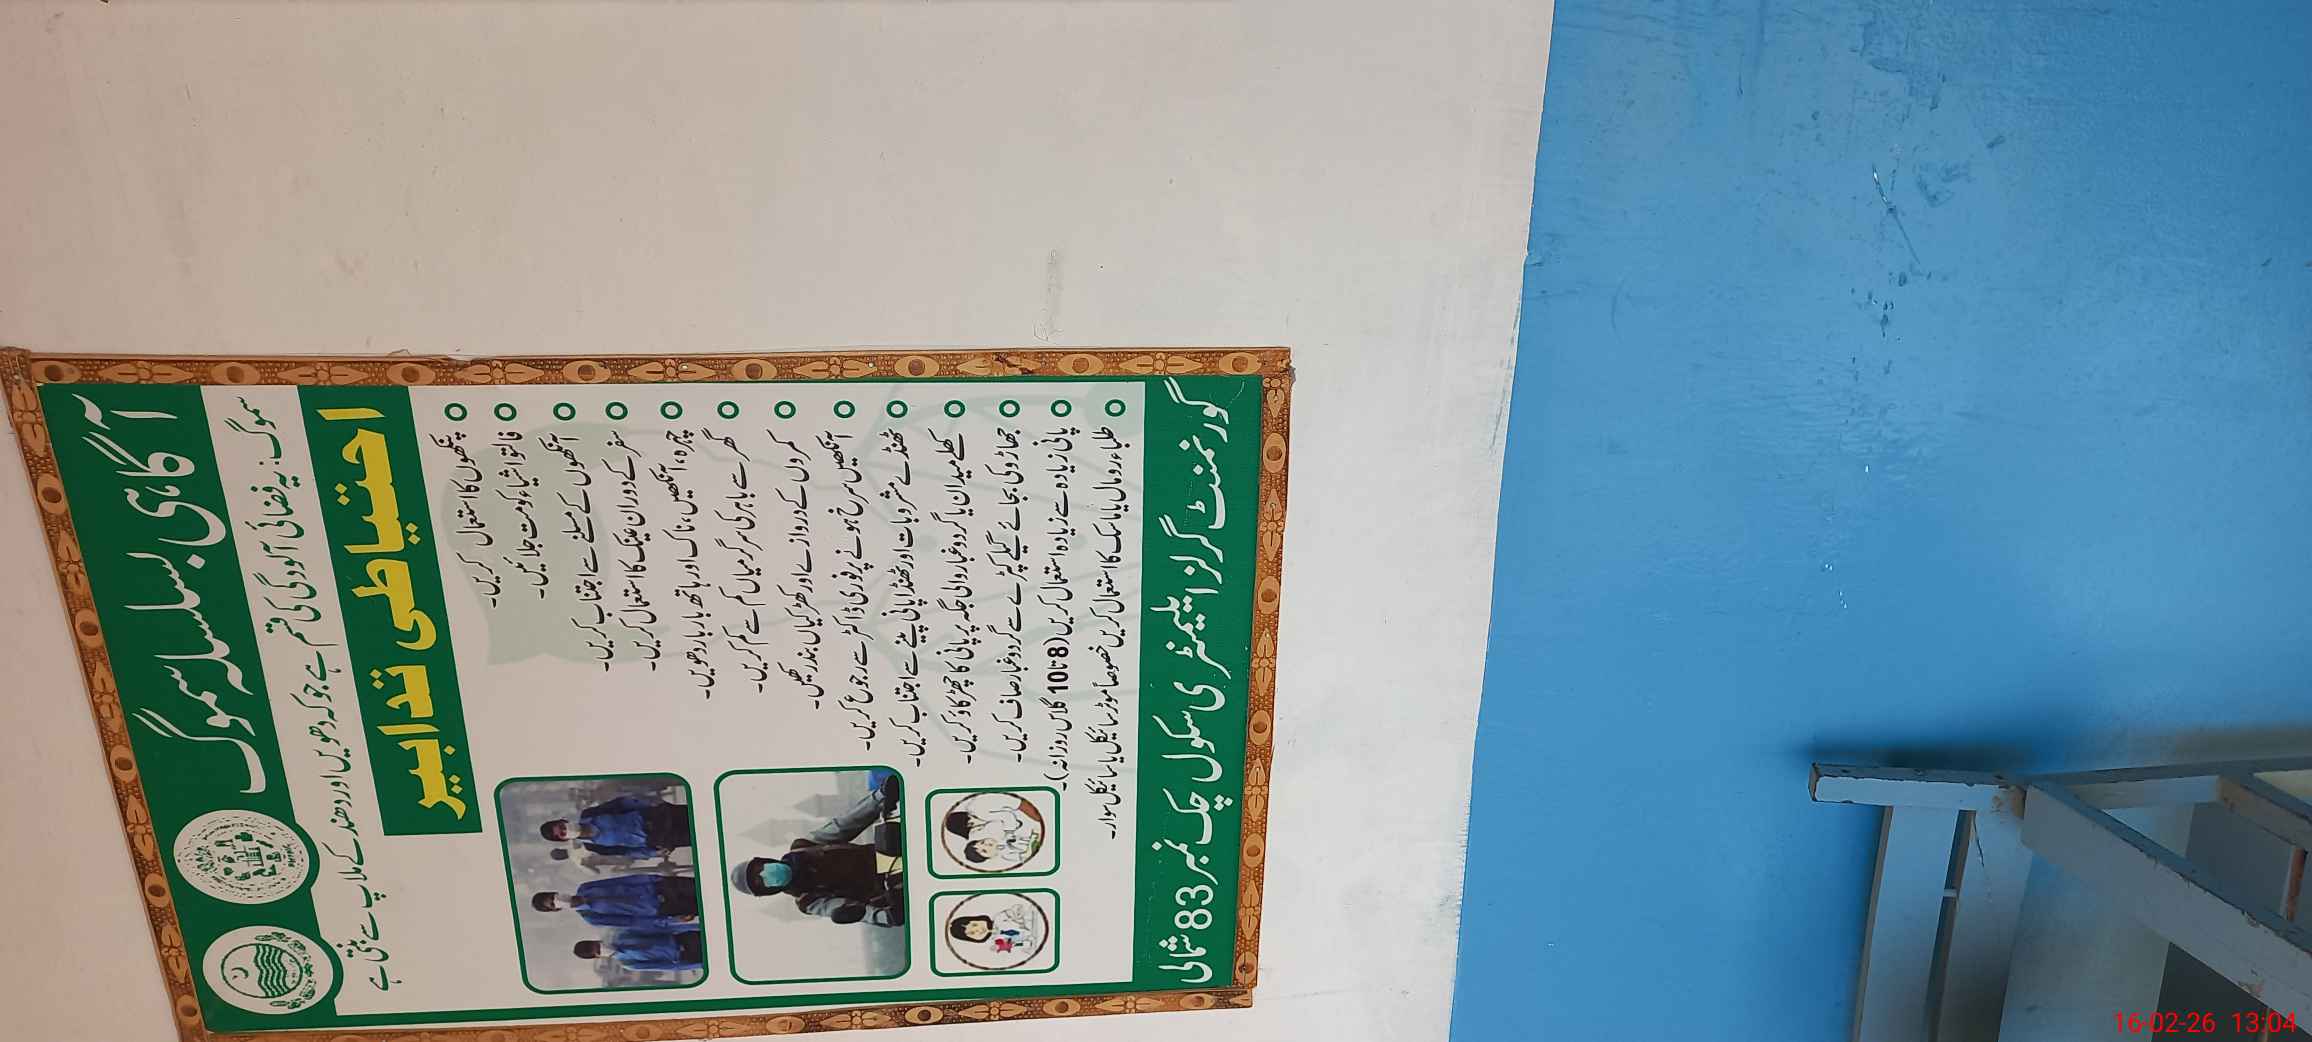 آگاہی بسلسلہ سموگ
سموگ: یہ فضائی آلودگی کی قسم ہے جو کہ دھویں اور دھند کے ملاپ سے بنتی ہے
احتیاطی تدابیر
پنکھوں کا استعمال کریں۔
فالتو اشیاء کو مت جلائیں۔
آنکھوں کے مسلنے سے اجتناب کریں۔
سفر کے دوران عینک کا استعمال کریں۔
چہرہ، آنکھیں، ناک اور ہاتھ بار بار دھویں۔
گھر سے باہر کی سرگرمیاں کم سے کم کریں۔
کمروں کے دروازے اور کھڑکیاں بند رکھیں۔
آنکھیں سرخ ہونے پر فوری ڈاکٹر سے رجوع کریں۔
ٹھنڈے مشروبات اور ٹھنڈا پانی پینے سے اجتناب کریں۔
کھلے میدان یا گردوغبار والی جگہ پر پانی کا چھڑکاؤ کریں۔
جھاڑو کی بجائے گیلے کپڑے سے گردوغبار صاف کریں۔
پانی زیادہ سے زیادہ استعمال کریں (8 تا 10 گلاس روزانہ)۔
طلباء رومال یا ماسک کا استعمال کریں خصوصاً موٹر سائیکل یا سائیکل سوار۔
گورنمنٹ گرلز ایلیمنٹری سکول چک نمبر 83 شمالی
16-02-26 13:04